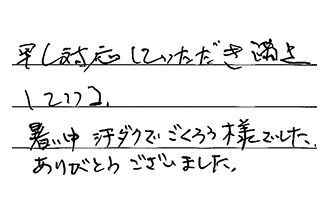 早く対応していただき満足
している。
暑い中 汗ダクでごくろう様でした。
ありがとうございました。